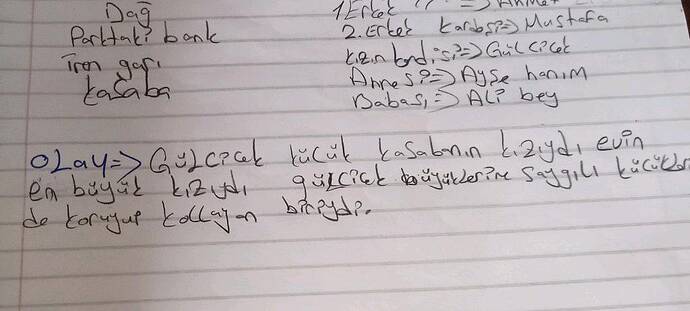 Dağ
Parktaki bank
Tren garı
kasaba
1.Erkek => Ahmet
2.Erkek kardeşi=> Mustafa
kızın kendisi=> Gülçiçek
Annesi=> Ayşe hanım
Babası=> Ali bey
OLay=> Gülçiçek küçük kasabanın kızıydı evin
en büyük kızıydı gülçiçek büyüklerine saygılı küçükleri
de koruyup kollayan biriydi.